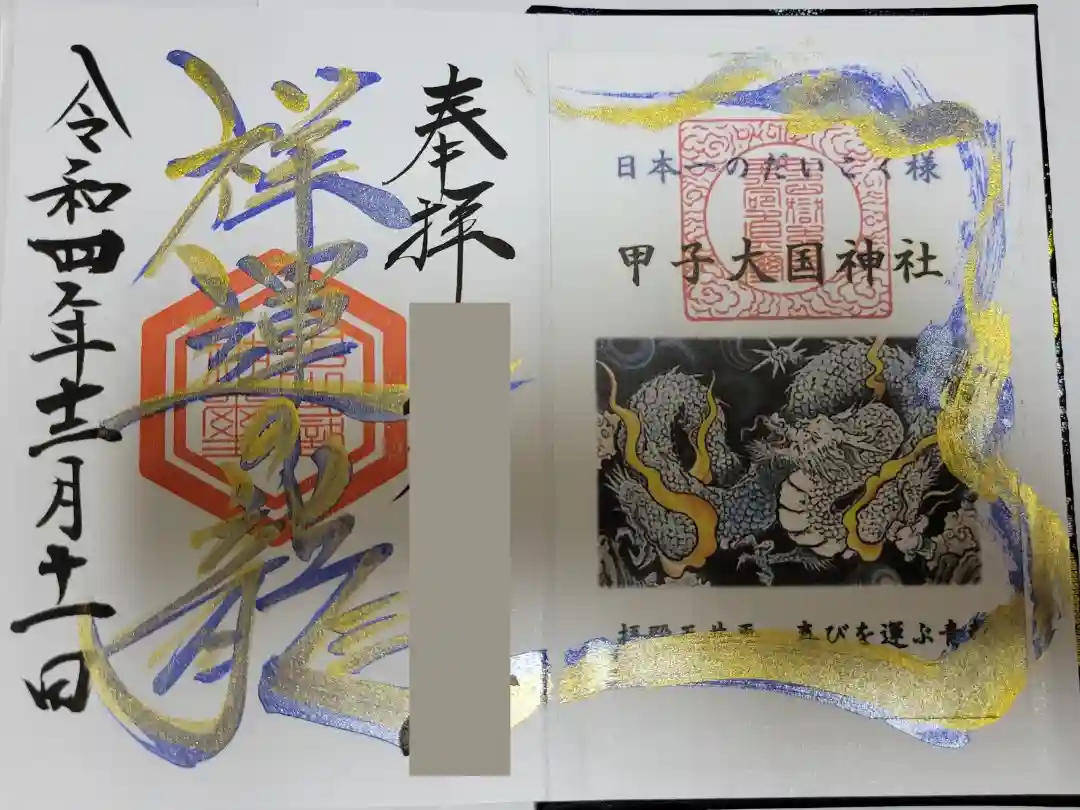 日本一のだいこく様
甲子大国神社
拝殿天井画 喜びを運ぶ青龍
奉拝
祥運の龍
令和四年十二月十一日